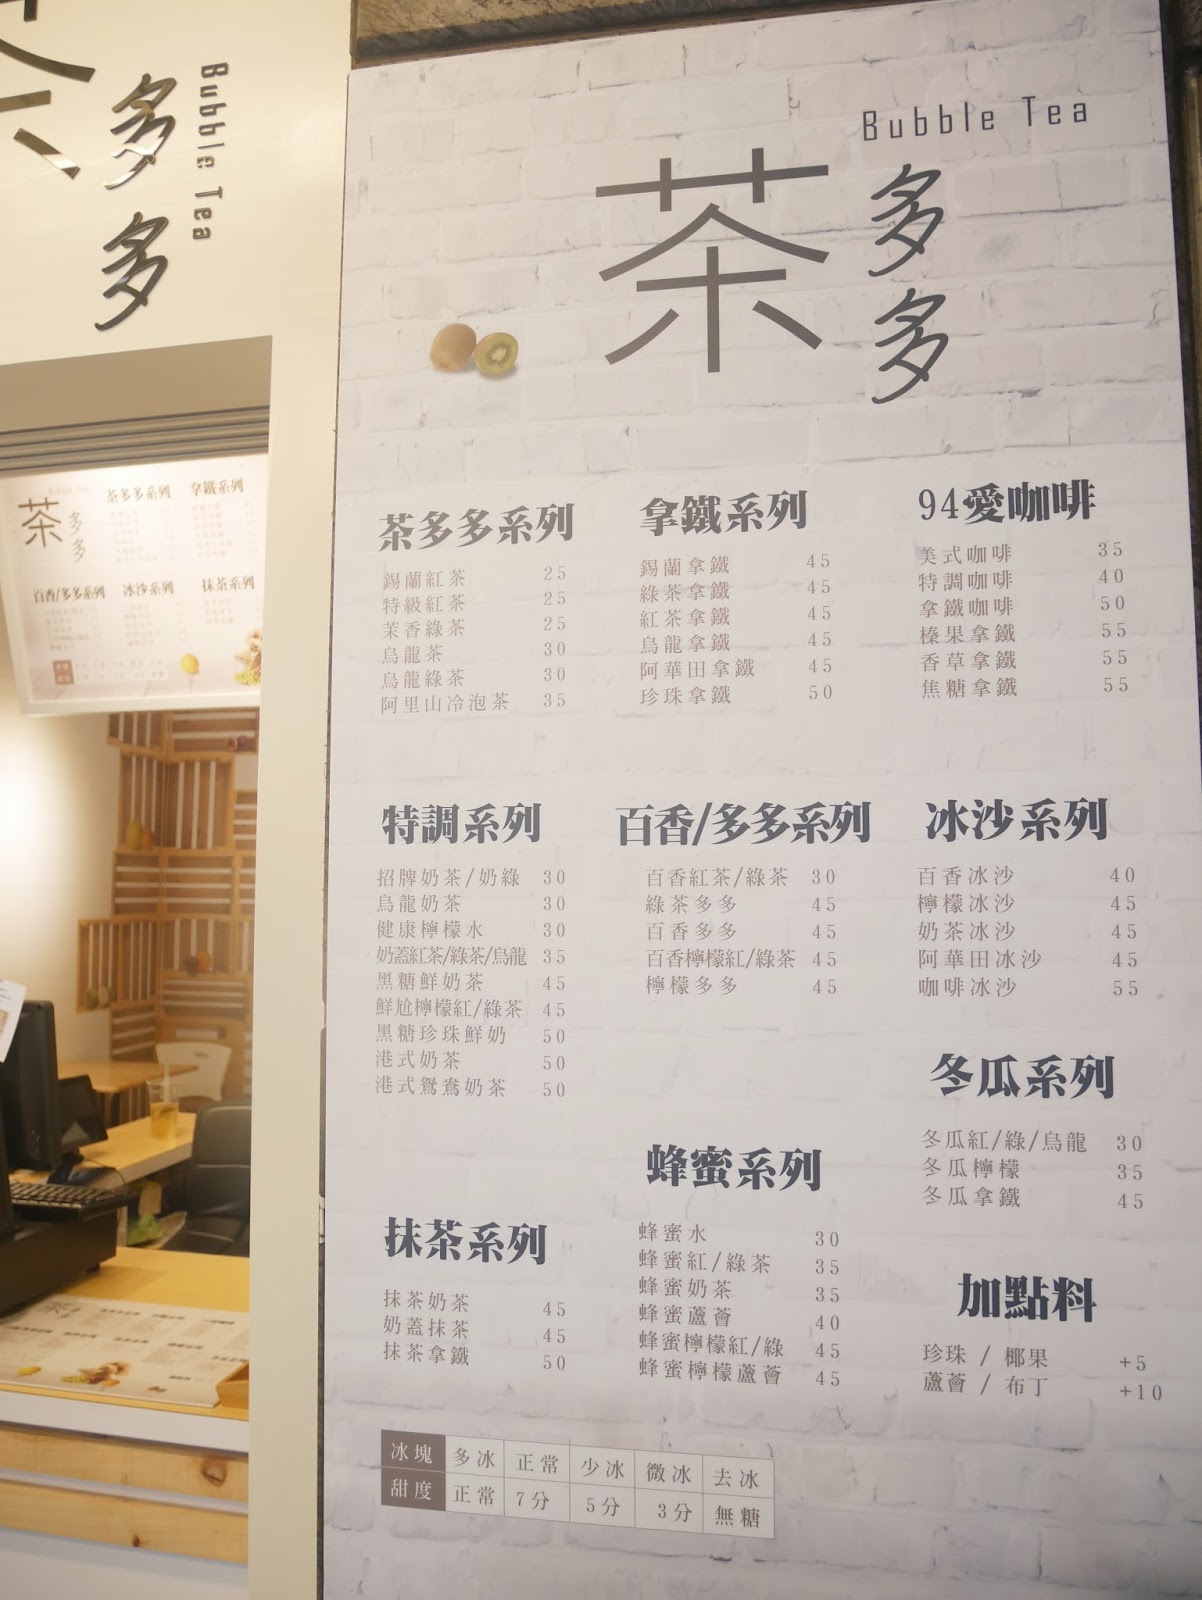 茶
多多
Bubble Tea
Bubble Tea
茶
多多
茶多多系列
錫蘭紅茶 25
特級紅茶 25
茉香綠茶 25
烏龍茶 30
烏龍綠茶 30
阿里山冷泡茶 35
拿鐵系列
錫蘭拿鐵 45
綠茶拿鐵 45
紅茶拿鐵 45
烏龍拿鐵 45
阿華田拿鐵 45
珍珠拿鐵 50
94愛咖啡
美式咖啡 35
特調咖啡 40
拿鐵咖啡 50
榛果拿鐵 55
香草拿鐵 55
焦糖拿鐵 55
特調系列
招牌奶茶/奶綠 30
烏龍奶茶 30
健康檸檬水 30
奶蓋紅茶/綠茶/烏龍 35
黑糖鮮奶茶 45
鮮尬檸檬紅/綠茶 45
黑糖珍珠鮮奶 50
港式奶茶 50
港式鴛鴦奶茶 50
百香/多多系列
百香紅茶/綠茶 30
綠茶多多 45
百香多多 45
百香檸檬紅/綠茶 45
檸檬多多 45
冰沙系列
百香冰沙 40
檸檬冰沙 45
奶茶冰沙 45
阿華田冰沙 45
咖啡冰沙 55
冬瓜系列
冬瓜紅/綠/烏龍 30
冬瓜檸檬 35
冬瓜拿鐵 45
抹茶系列
抹茶奶茶 45
奶蓋抹茶 45
抹茶拿鐵 50
蜂蜜系列
蜂蜜水 30
蜂蜜紅/綠茶 35
蜂蜜奶茶 35
蜂蜜蘆薈 40
蜂蜜檸檬紅/綠 45
蜂蜜檸檬蘆薈 45
加點料
珍珠 / 椰果 +5
蘆薈 / 布丁 +10
冰塊 多冰 正常 少冰 微冰 去冰
甜度 正常 7分 5分 3分 無糖
茶
多多
Bubble Tea
茶多多系列 拿鐵系列
百香/多多系列 冰沙系列 抹茶系列